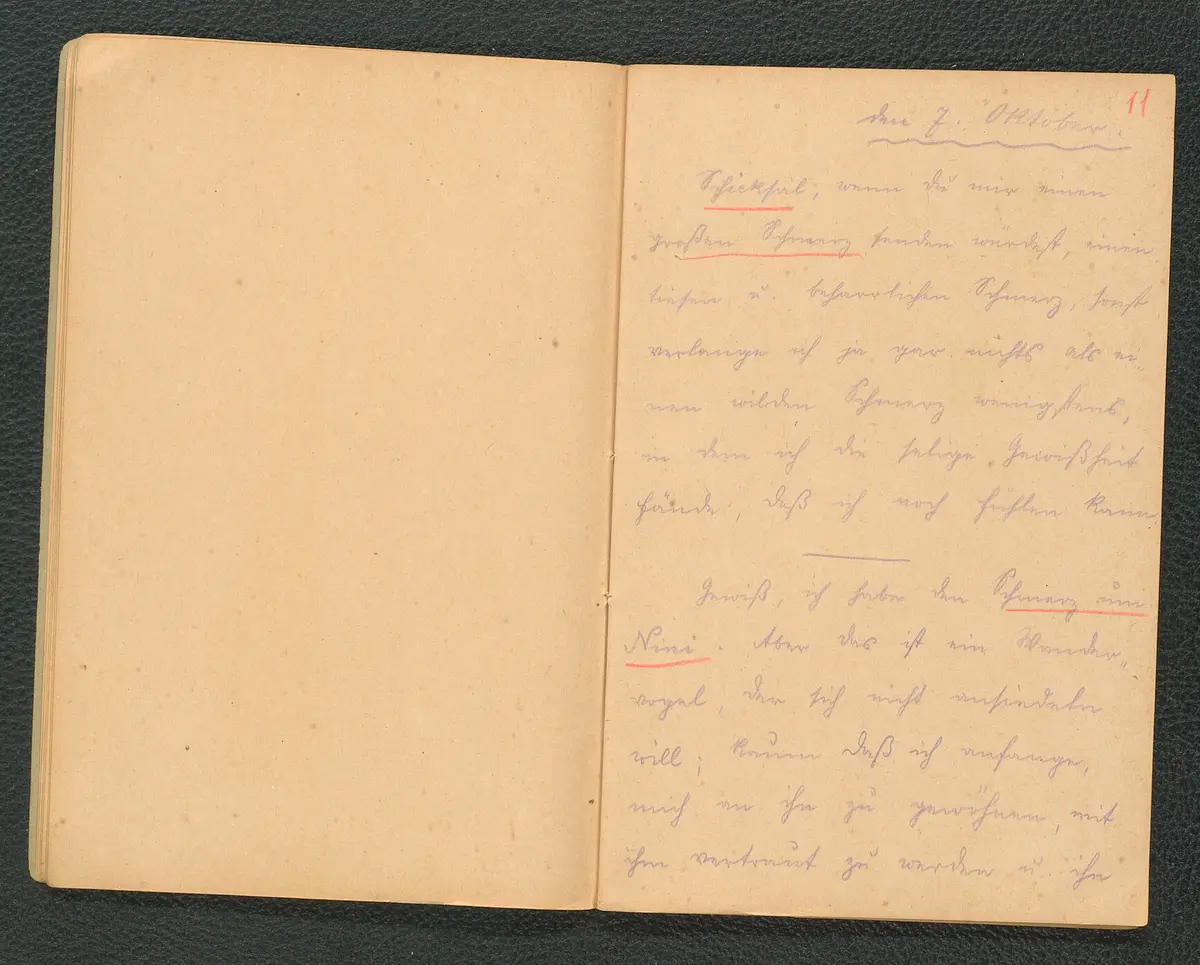 11
den 7. Oktober.
Schicksal, wenn du mir einen
großen Schmerz senden würdest, einen
tiefen u. beharrlichen Schmerz, sonst
verlange ich ja gar nichts als ei-
nen wilden Schmerz wenigstens,
in dem ich die selige Gewißheit
fände, daß ich noch fühlen kann.
Gewiß, ich habe den Schmerz um
Nini. Aber das ist ein Wander-
vogel, der sich nicht ansiedeln
will; kaum daß ich anfange,
mich an ihn zu gewöhnen, mit
ihm vertraut zu werden u. ihn